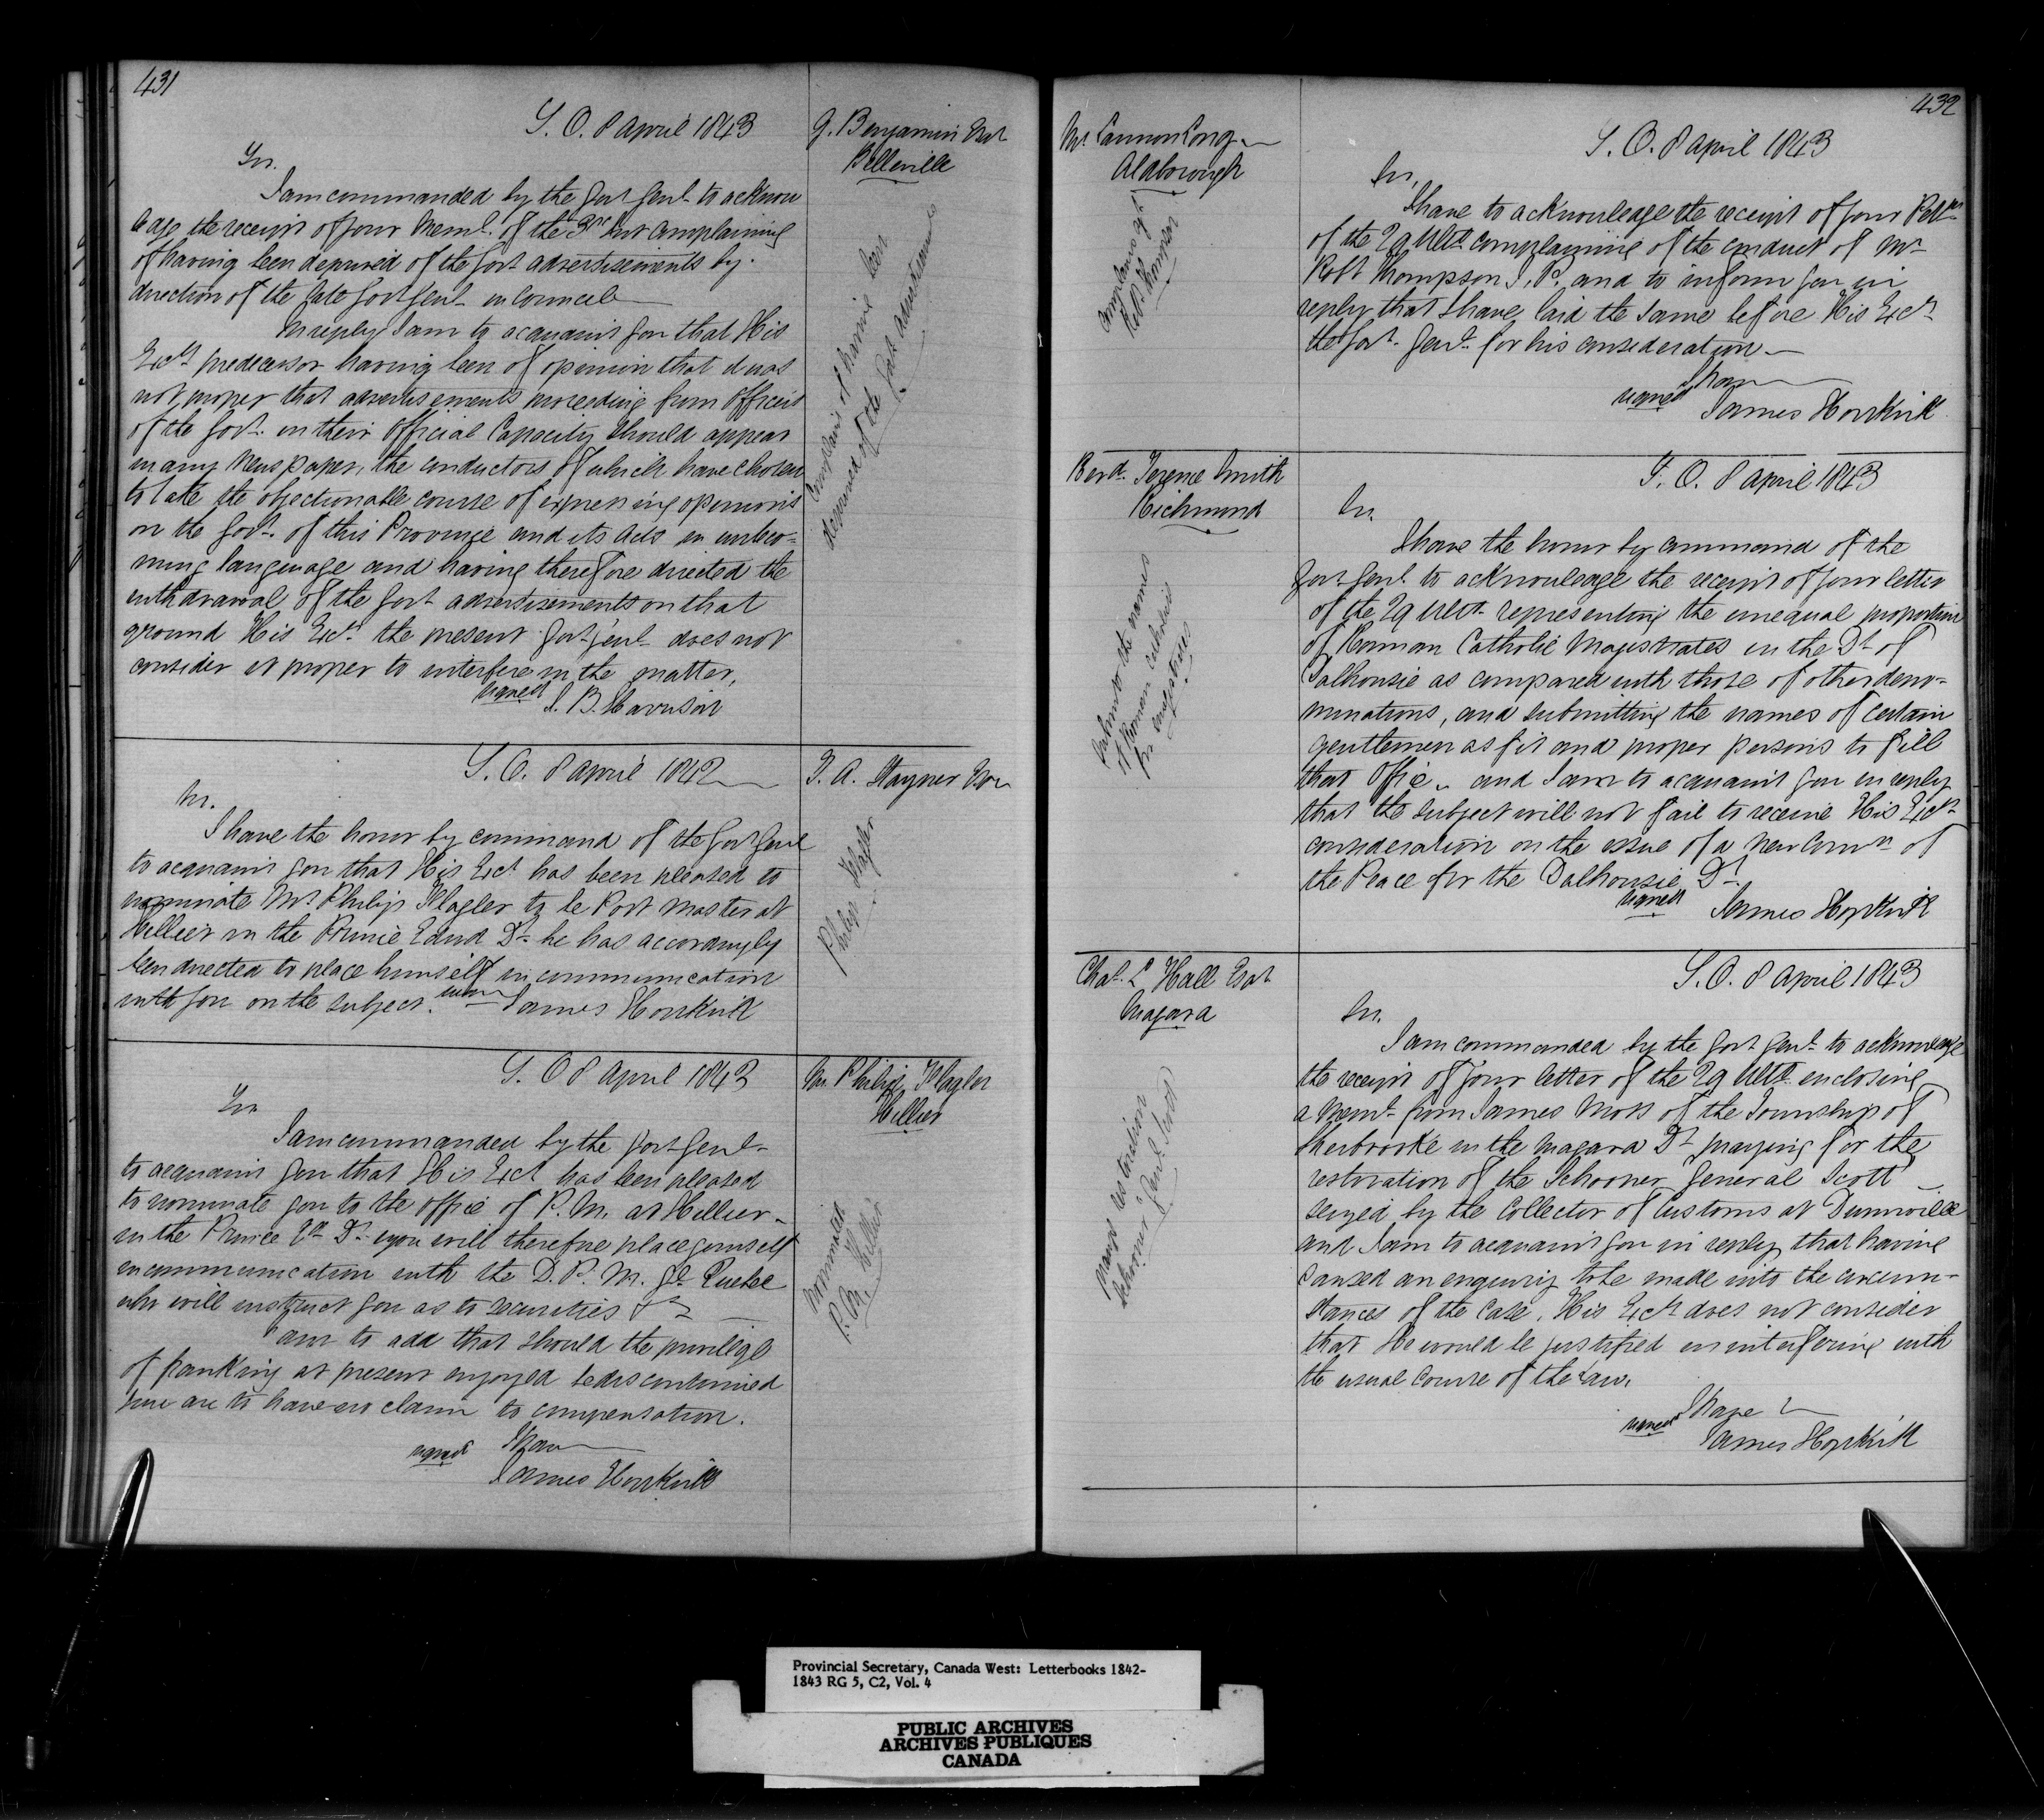 431
S. O. 8 April 1843
G. Benjamin Esqr
Belleville
Sir.
I am commanded by the Govr Genl to acknow
ledge the receipt of your Meml. of the 3rd Inst complaining
of having been deprived of the Govt advertisements by
direction of the late Govr Genl in Council
In reply I am to acquaint you that His
Excy's predecessor having been of opinion that it was
not proper that advertisements proceeding from Officers
of the Govt. in their Official Capacity should appear
in any Newspaper, the conductors of which have chosen
to take the objectionable course of expressing opinions
on the Govt. of this Province and its Acts in unbeco-
ming language and having therefore directed the
withdrawal of the Govt advertisements on that
ground His Excy. the present Govr Genl does not
consider it proper to interfere in the matter,
signed S. B. Harrison
Complains of having been
deprived of the Govt advertisements
S. O. 8 April 1842
T. A. Stayner Esqr
Sir.
I have the honor by command of the Govr Genl
to acquaint you that His Excy has been pleased to
nominate Mr Philip Flagler to be Post Master at
Hellier in the Prince Edwd Dt. he has accordingly
been directed to place himself in communication
with you on the subject.
signed James Hopkirk
Philip Flagler
S. O 8 April 1843
Mr Philip Flagler
Hillier
Sir
I am commanded by the Govr Genl
to acquaint you that His Excy has been pleased
to nominate you to the office of P. M. at Hellier
in the Prince Ed Dt. you will therefore place yourself
in communication with the D. P. M. Gl Quebec
who will instruct you as to securities &c
am to add that should the privilege
of franking at present enjoyed be discontinued
you are to have no claim to compensation.
I have
signed James Hopkirk
Nominated
P. M. Hillier
432
Mr Cannon Long
Aldborough
S. O. 8 April 1843
Sir,
I have to acknowledge the receipt of your Pettn
of the 29 Ulto complaining of the conduct of Mr
Robt Thompson J. P. and to inform you in
reply that I have laid the same before His Excy
the Govr. Genl. for his consideration
I have
signed James Hopkirk
Complains agt
Robt Thompson
Revd. Terence Smith
Richmond
S. O. 8 April 1843
Sir.
I have the honor by command of the
Govr Genl to acknowledge the receipt of your letter
of the 29 Ulto representing the unequal proportion
of Roman Catholic Magistrates in the Dt of
Dalhousie as compared with those of other deno-
minations, and submitting the names of certain
gentlemen as fit and proper persons to fill
that Office and I am to acquaint you in reply
that the subject will not fail to receive His Excy
consideration on the issue of a New Comn of
the Peace for the Dalhousie Dt
signed James Hopkirk
Submits the names
of Roman Catholics
for magistrates
Chas. L Hall Esqr
Niagara
S. O. 8 April 1843
Sir.
I am commanded by the Govr Genl to acknowledge
the receipt of your letter of the 29 Ulto. enclosing
a Meml from James Moss of the Township of
Sherbrooke in the Niagara Dt praying for the
restoration of the Schooner "General Scott"
seized by the Collector of Customs at Dunnville
and I am to acquaint you in reply that having
caused an enquiry to be made into the circum-
stances of the Case, His Excy does not consider
that He would be justified in interfering with
the usual course of the Law.
I have
signed James Hopkirk
prays restoration
Schooner Genl. Scott
Provincial Secretary, Canada West: Letterbooks 1842-
1843 RG 5, C2, Vol. 4
PUBLIC ARCHIVES
ARCHIVES PUBLIQUES
CANADA